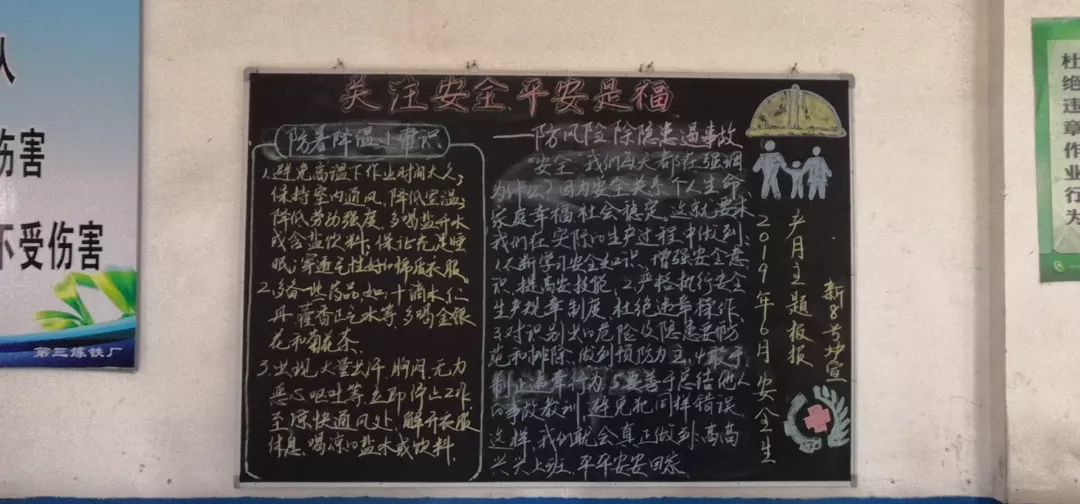 人
伤害
不受伤害
第三炼铁厂
关注安全 平安是福
防暑降温小常识
1.避免高温下作业时间太久;
保持室内通风,降低室温;
降低劳动强度,多喝盐开水
或含盐饮料;保证充足睡
眠;穿透气性好的棉质衣服。
2.多备一些药品,如:十滴水、仁
丹、藿香正气水等,多喝金银
花和菊花茶。
3.出现大量出汗、胸闷、无力
恶心呕吐等,立即停止工作
至凉快通风处,解开衣服
休息,喝凉的盐水或饮料
——防风险 除隐患 遏事故
“安全”我们每天都在强调
为什么?因为安全关系个人生命、
家庭幸福、社会稳定。这就要求
我们在实际的生产过程中做到:
1.不断学习安全知识、增强安全意
识、提高安技能,2.严格执行安全
生产规章制度,杜绝违章操作,
3.对识别出的危险及隐患要防
范和排除,做到预防为主,4.敢于
制止违章行为,5.要善于总结他人
的事故教训,避免犯同样错误。
这样,我们就会真正做到:高高
兴兴上班、平平安安回家
2019年6月安全生
产月主题板报
新8号炉宣
杜绝违章作业行为